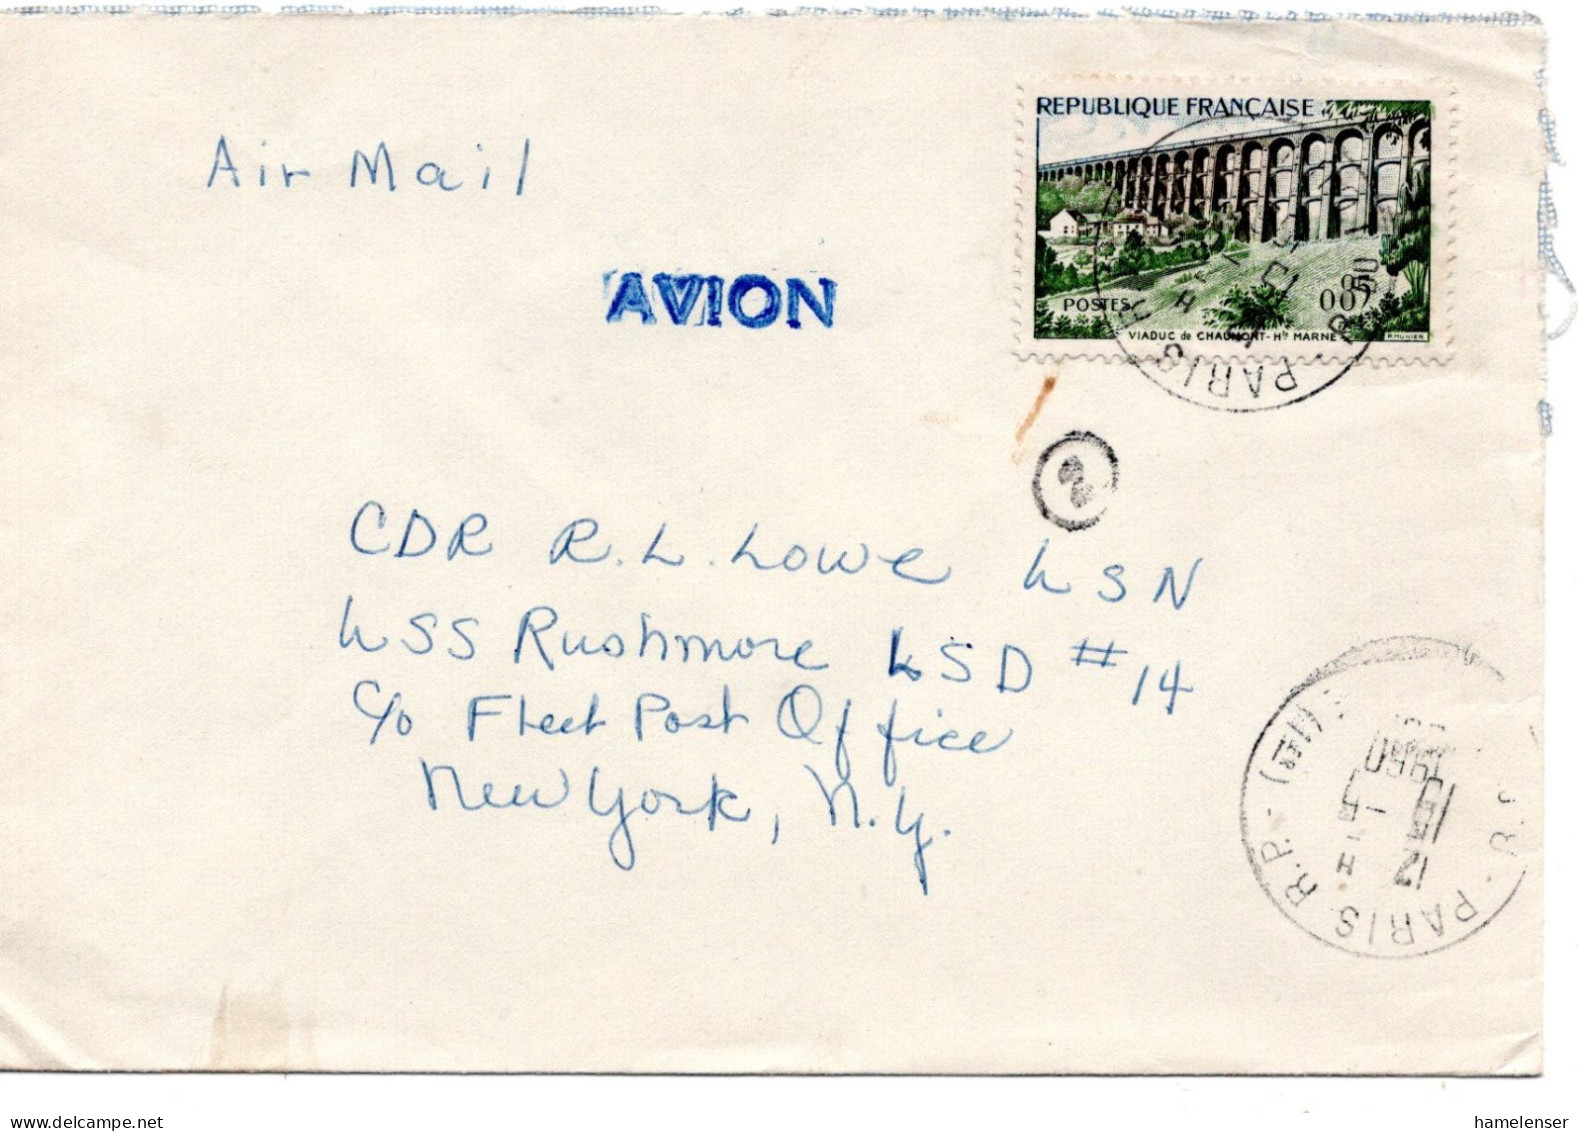 REPUBLIQUE FRANÇAISE
0,85
POSTES
VIADUC de CHAUMONT-Hte MARNE
P. MUNIER
Air Mail
AVION
PARIS
CDR R. L. Lowe USN
USS Rushmore LSD #14
c/o Fleet Post Office
New York, N.Y.
PARIS R.P.
12 H
15 - 5
1960
www.delcampe.net
hamelenser